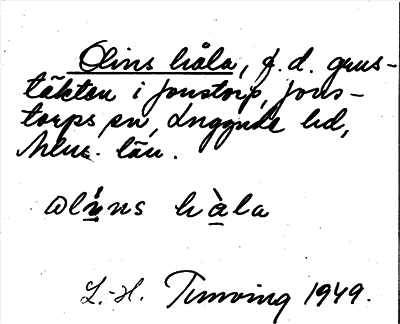 Olins håla, f.d. grus-
täkten i Jonstorp, Jons-
torps sn, Luggude hd,
Mlus. län.
Olíns hàla
L.-H. Tunving 1949.